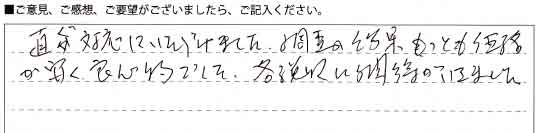 ■ご意見、ご感想、ご要望がございましたら、ご記入ください。
直ぐ対応していただけました。調査の結果もっとも価格
が安く良い物でした。各説